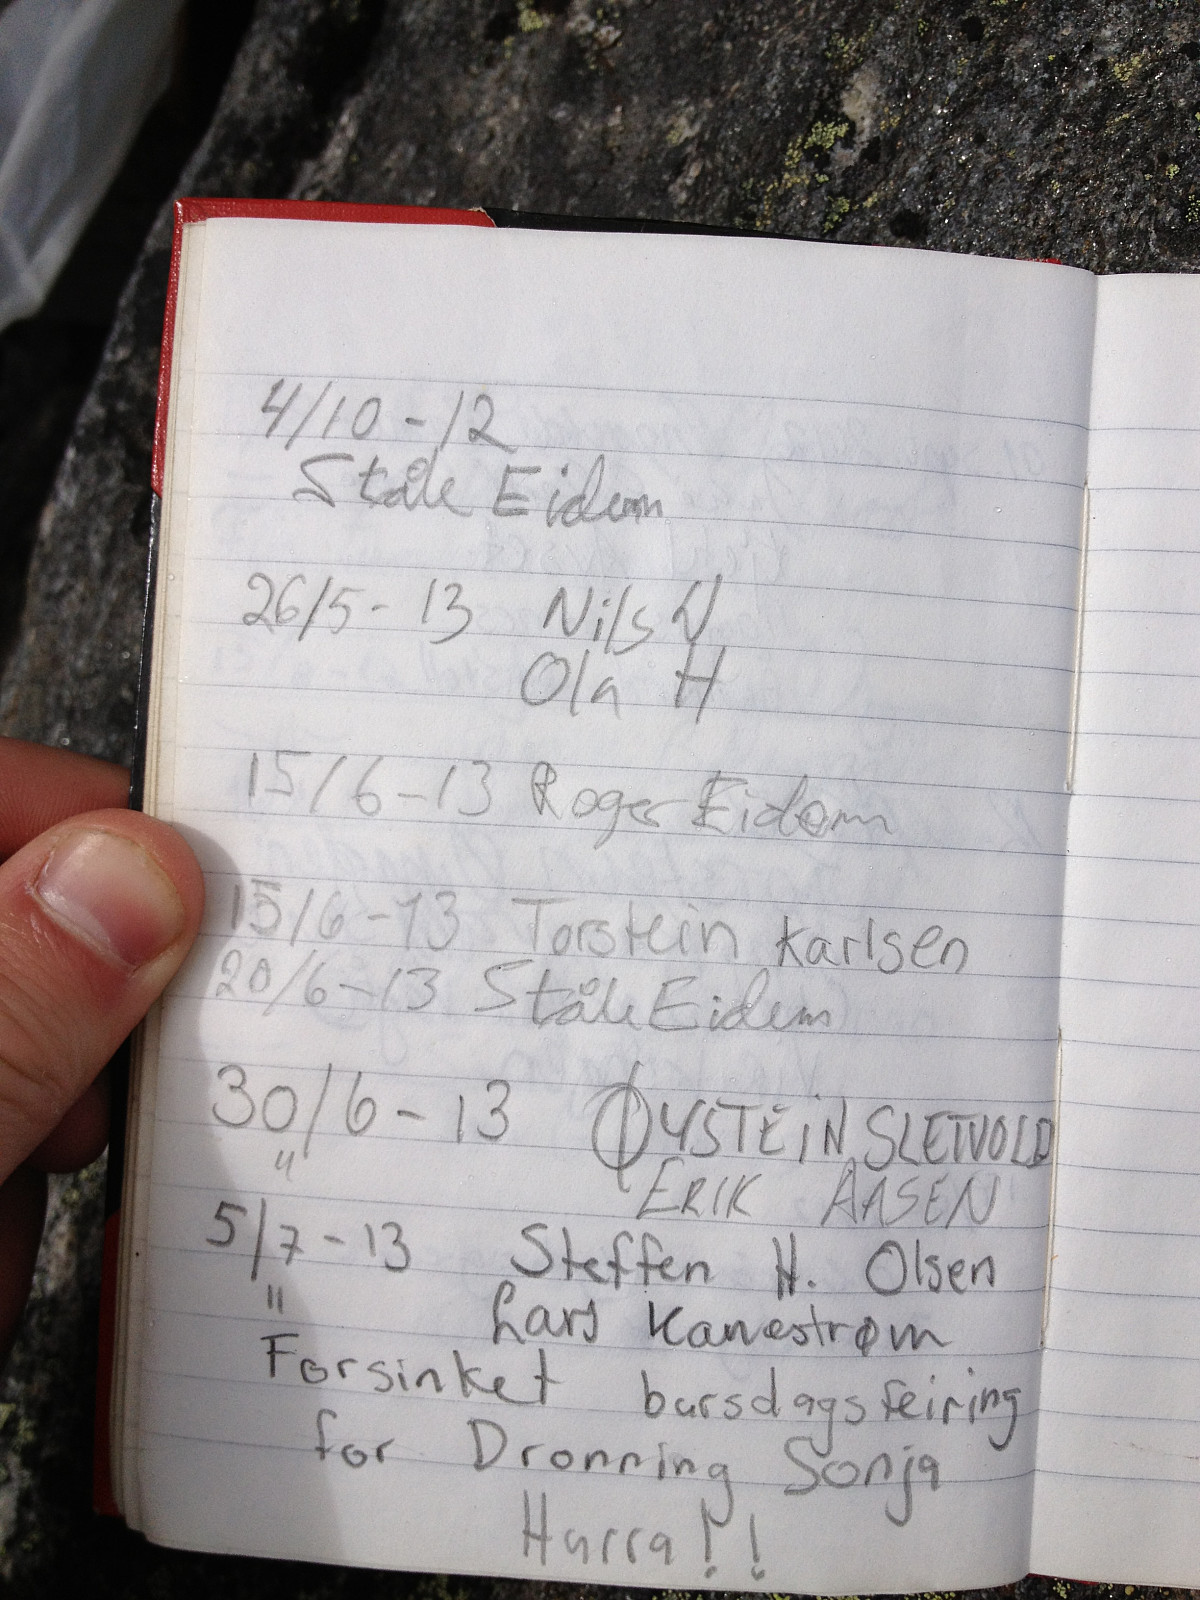 4/10-12
Ståle Eidem
26/5-13 Nils N
Ola H
15/6-13 Roger Eidem
15/6-13 Torstein Karlsen
20/6-13 Ståle Eidem
30/6-13 ØYSTEiN SLETVOLD
" ERIK AASEN
5/7-13 Steffen H. Olsen
" Lars Kanestrøm
Forsinket bursdagsfeiring
for Dronning Sonja
Hurra!!